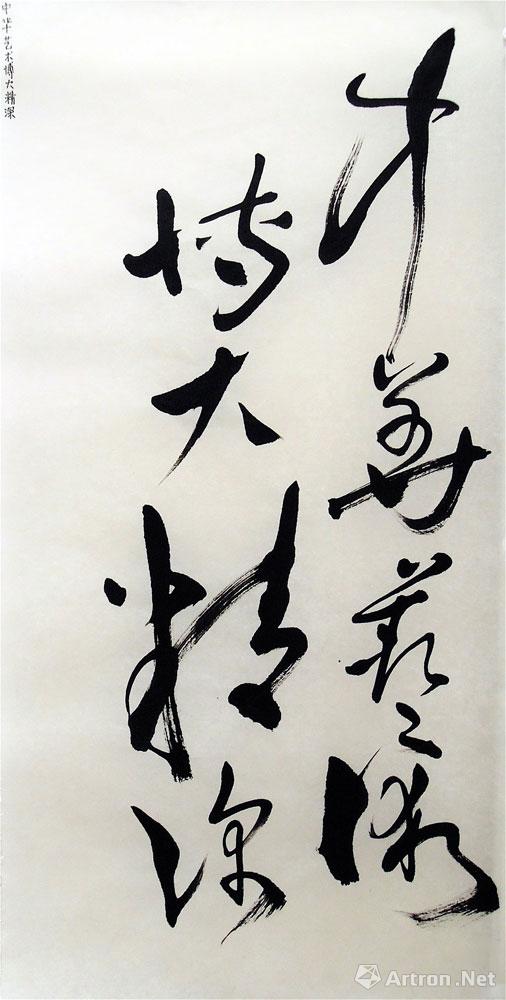 中華藝術
博大精深
中华艺术博大精深
Artron.Net